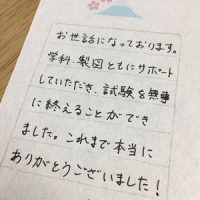 お世話になっております。
学科・製図ともにサポート
していただき、試験を無事
に終えることができ
ました。これまで本当に
ありがとうございました！